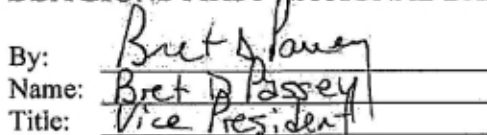 By: Bret D Passey
Name: Bret D Passey
Title: Vice President